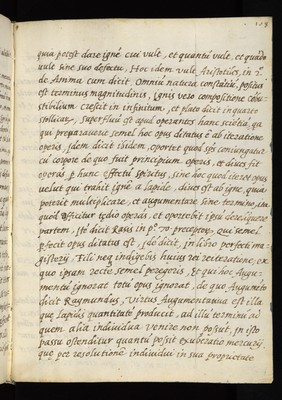 quia potest dare igné cui vult, et quantú vult, et quádo
vult sine suo defectu, Hoc idem vult Aristotiles, in 2.
de Anima cum dicit Omniú natura constátiú, positus
est terminus magnitudinis, Ignis vero compositione com-
stibilium crescit in infinitum, et plato dicit in quarto
superfluú est apud operantes hanc sciétiá, qa
qui preparaverit semel hoc opus ditatus é ab iteratione
operis, Idem dicit ibidem, oportet quod sps coniungatur
cú corpore de quo fuit principium operis, et dives sit
operás p hunc effectú spiritus, sine hoc quod iteret opus
velut qui trahit igné a lapide, dives est ab igne, quia
poterit multiplicare, et augmentare sine termino,
quod efficitur tedio operás, et oportebit ipsú derelinquere
partem, Ité dicit Rasis in po. 70 preceptorú, qui semel
pfecit opus ditatus est, Ité dicit, in libro perfecti ma-
gisterij, Fili neq indigebis huius rei reiteratione, ex
quo ipsam recte semel peregeris, Et qui hoc Augu-
mentú ignorat totú opus ignorat, de quo Augméto
dicit Raymundus, Virtus Augumentativa est illa
que Lapidis quantitaté producit, ad illú terminú ad
quem alia individua venire non possút, In isto
passu ostenditur quantú possit exuberatio mercurij
que per resolutione individui in sua proprietate